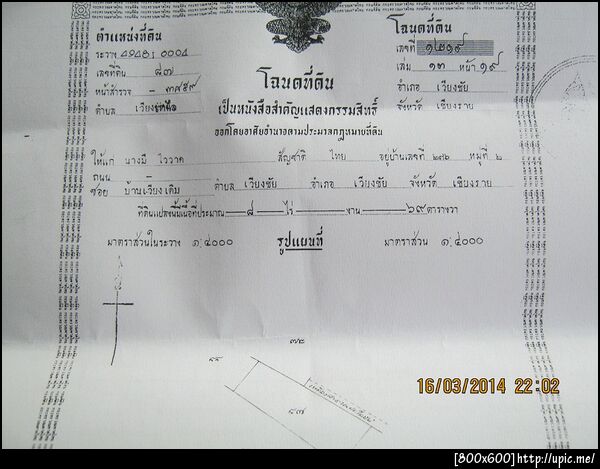 ตำแหน่งที่ดิน
ระวาง 4948 I 0004
เลขที่ดิน ๘๗
หน้าสำรวจ - ๓๙๕๙
ตำบล เวียงเหนือ
โฉนดที่ดิน
เลขที่ ๑๒๑๙
เล่ม ๑๓ หน้า ๑๙
อำเภอ เวียงชัย
จังหวัด เชียงราย
โฉนดที่ดิน
เป็นหนังสือสำคัญแสดงกรรมสิทธิ์
ออกโดยอาศัยอำนาจตามประมวลกฎหมายที่ดิน
ให้แก่ นางมี ไววาค สัญชาติ ไทย อยู่บ้านเลขที่ ๒๙๖ หมู่ที่ ๒
ถนน
ซอย บ้านเวียงเดิม ตำบล เวียงชัย อำเภอ เวียงชัย จังหวัด เชียงราย
ที่ดินแปลงนี้มีเนื้อที่ประมาณ ๘ ไร่ - งาน ๖๙ ตารางวา
มาตราส่วนในระวาง ๑:๔๐๐๐ รูปแผนที่ มาตราส่วน ๑:๔๐๐๐
๗๔
๘๘
๘๗
16/03/2014 22:02
[800x600]http://upic.me/